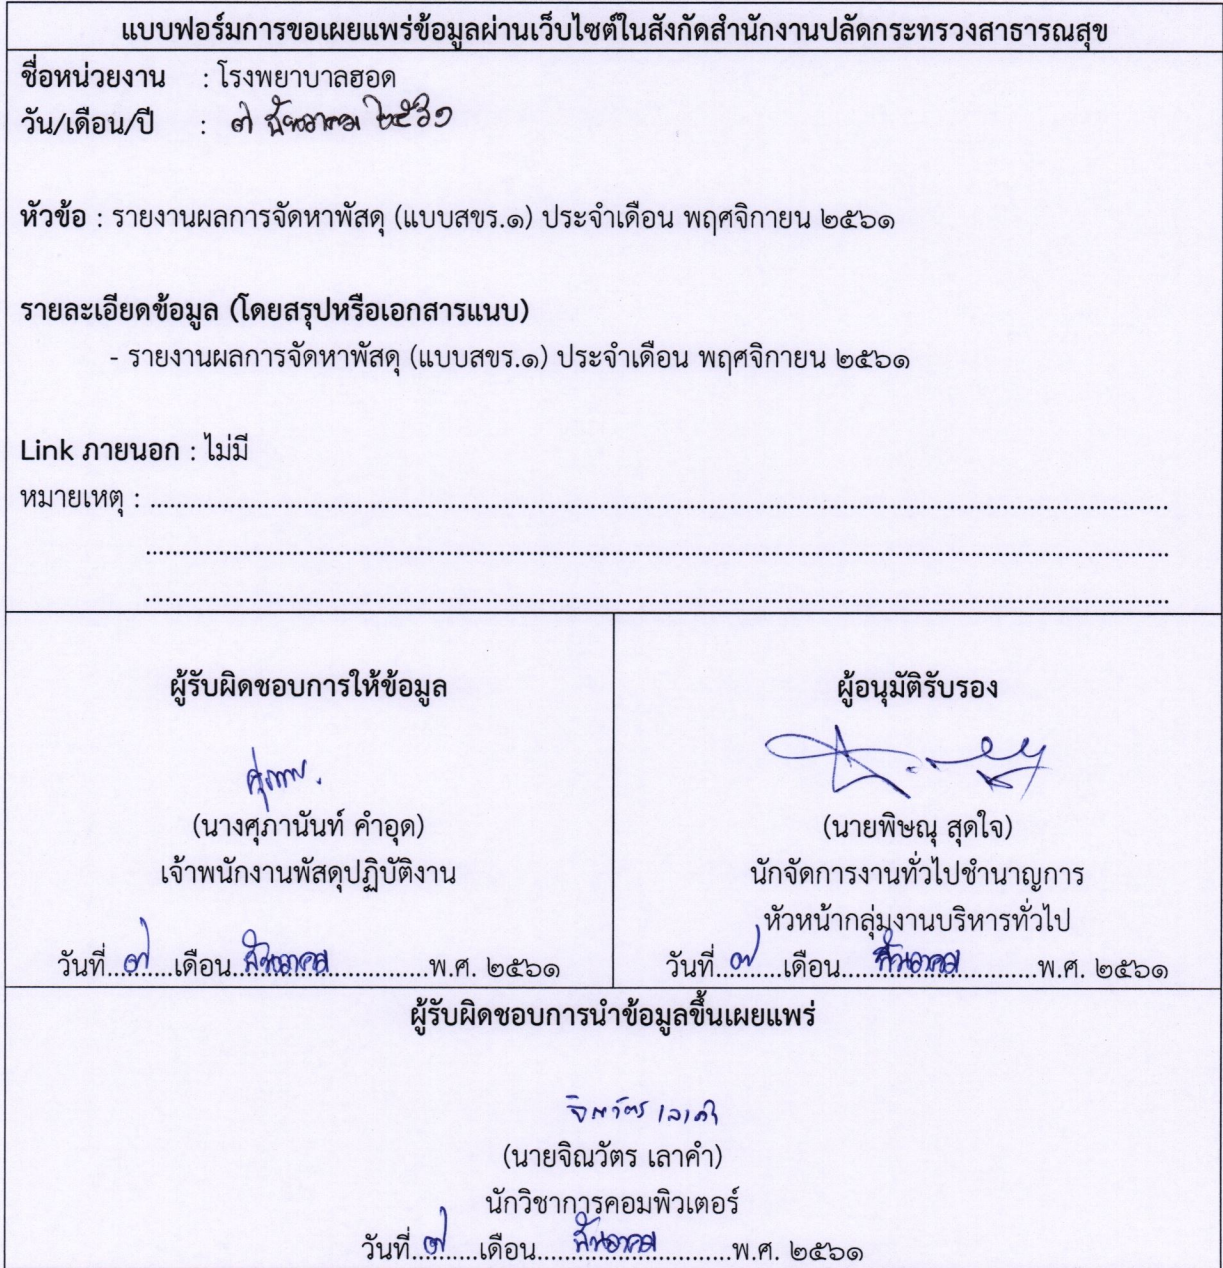 แบบฟอร์มการขอเผยแพร่ข้อมูลผ่านเว็บไซต์ในสังกัดสำนักงานปลัดกระทรวงสาธารณสุข
ชื่อหน่วยงาน : โรงพยาบาลฮอด
วัน/เดือน/ปี : ๗ ธันวาคม ๒๕๖๑
หัวข้อ : รายงานผลการจัดหาพัสดุ (แบบสขร.๑) ประจำเดือน พฤศจิกายน ๒๕๖๑
รายละเอียดข้อมูล (โดยสรุปหรือเอกสารแนบ)
- รายงานผลการจัดหาพัสดุ (แบบสขร.๑) ประจำเดือน พฤศจิกายน ๒๕๖๑
Link ภายนอก : ไม่มี
หมายเหตุ : ........................................
........................................
........................................
ผู้รับผิดชอบการให้ข้อมูล
(นางศุภานันท์ คำอุด)
เจ้าพนักงานพัสดุปฏิบัติงาน
วันที่ ๗ เดือน ธันวาคม พ.ศ. ๒๕๖๑
ผู้อนุมัติรับรอง
(นายพิษณุ สุดใจ)
นักจัดการงานทั่วไปชำนาญการ
หัวหน้ากลุ่มงานบริหารทั่วไป
วันที่ ๗ เดือน ธันวาคม พ.ศ. ๒๕๖๑
ผู้รับผิดชอบการนำข้อมูลขึ้นเผยแพร่
จิณวัตร เลาคำ
(นายจิณวัตร เลาคำ)
นักวิชาการคอมพิวเตอร์
วันที่ ๗ เดือน ธันวาคม พ.ศ. ๒๕๖๑